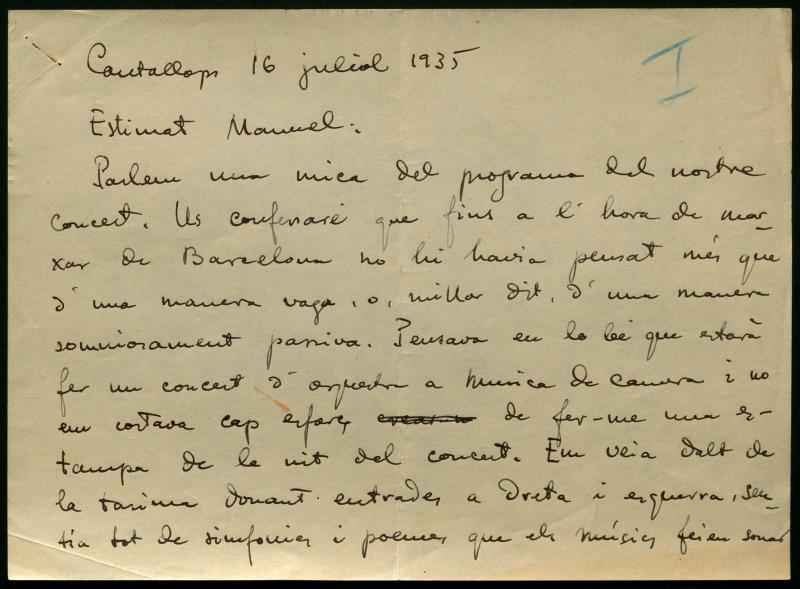 Cantallops 16 juliol 1935
I
Estimat Manuel:
Parlem una mica del programa del nostre
concert. Us confessaré que fins a l'hora de mar-
xar de Barcelona no hi havia pensat més que
d'una manera vaga, o, millor dit, d'una manera
somniosament passiva. Pensava en lo bé que estarà
fer un concert d'orquestra a Musica da Camera i no
em costava cap esforç de fer-me una es-
tampa de la nit del concert. Em veia dalt de
la tarima donant entrades a dreta i esquerra, sen-
tia tot de simfonies i poemes que els músics feien sonar